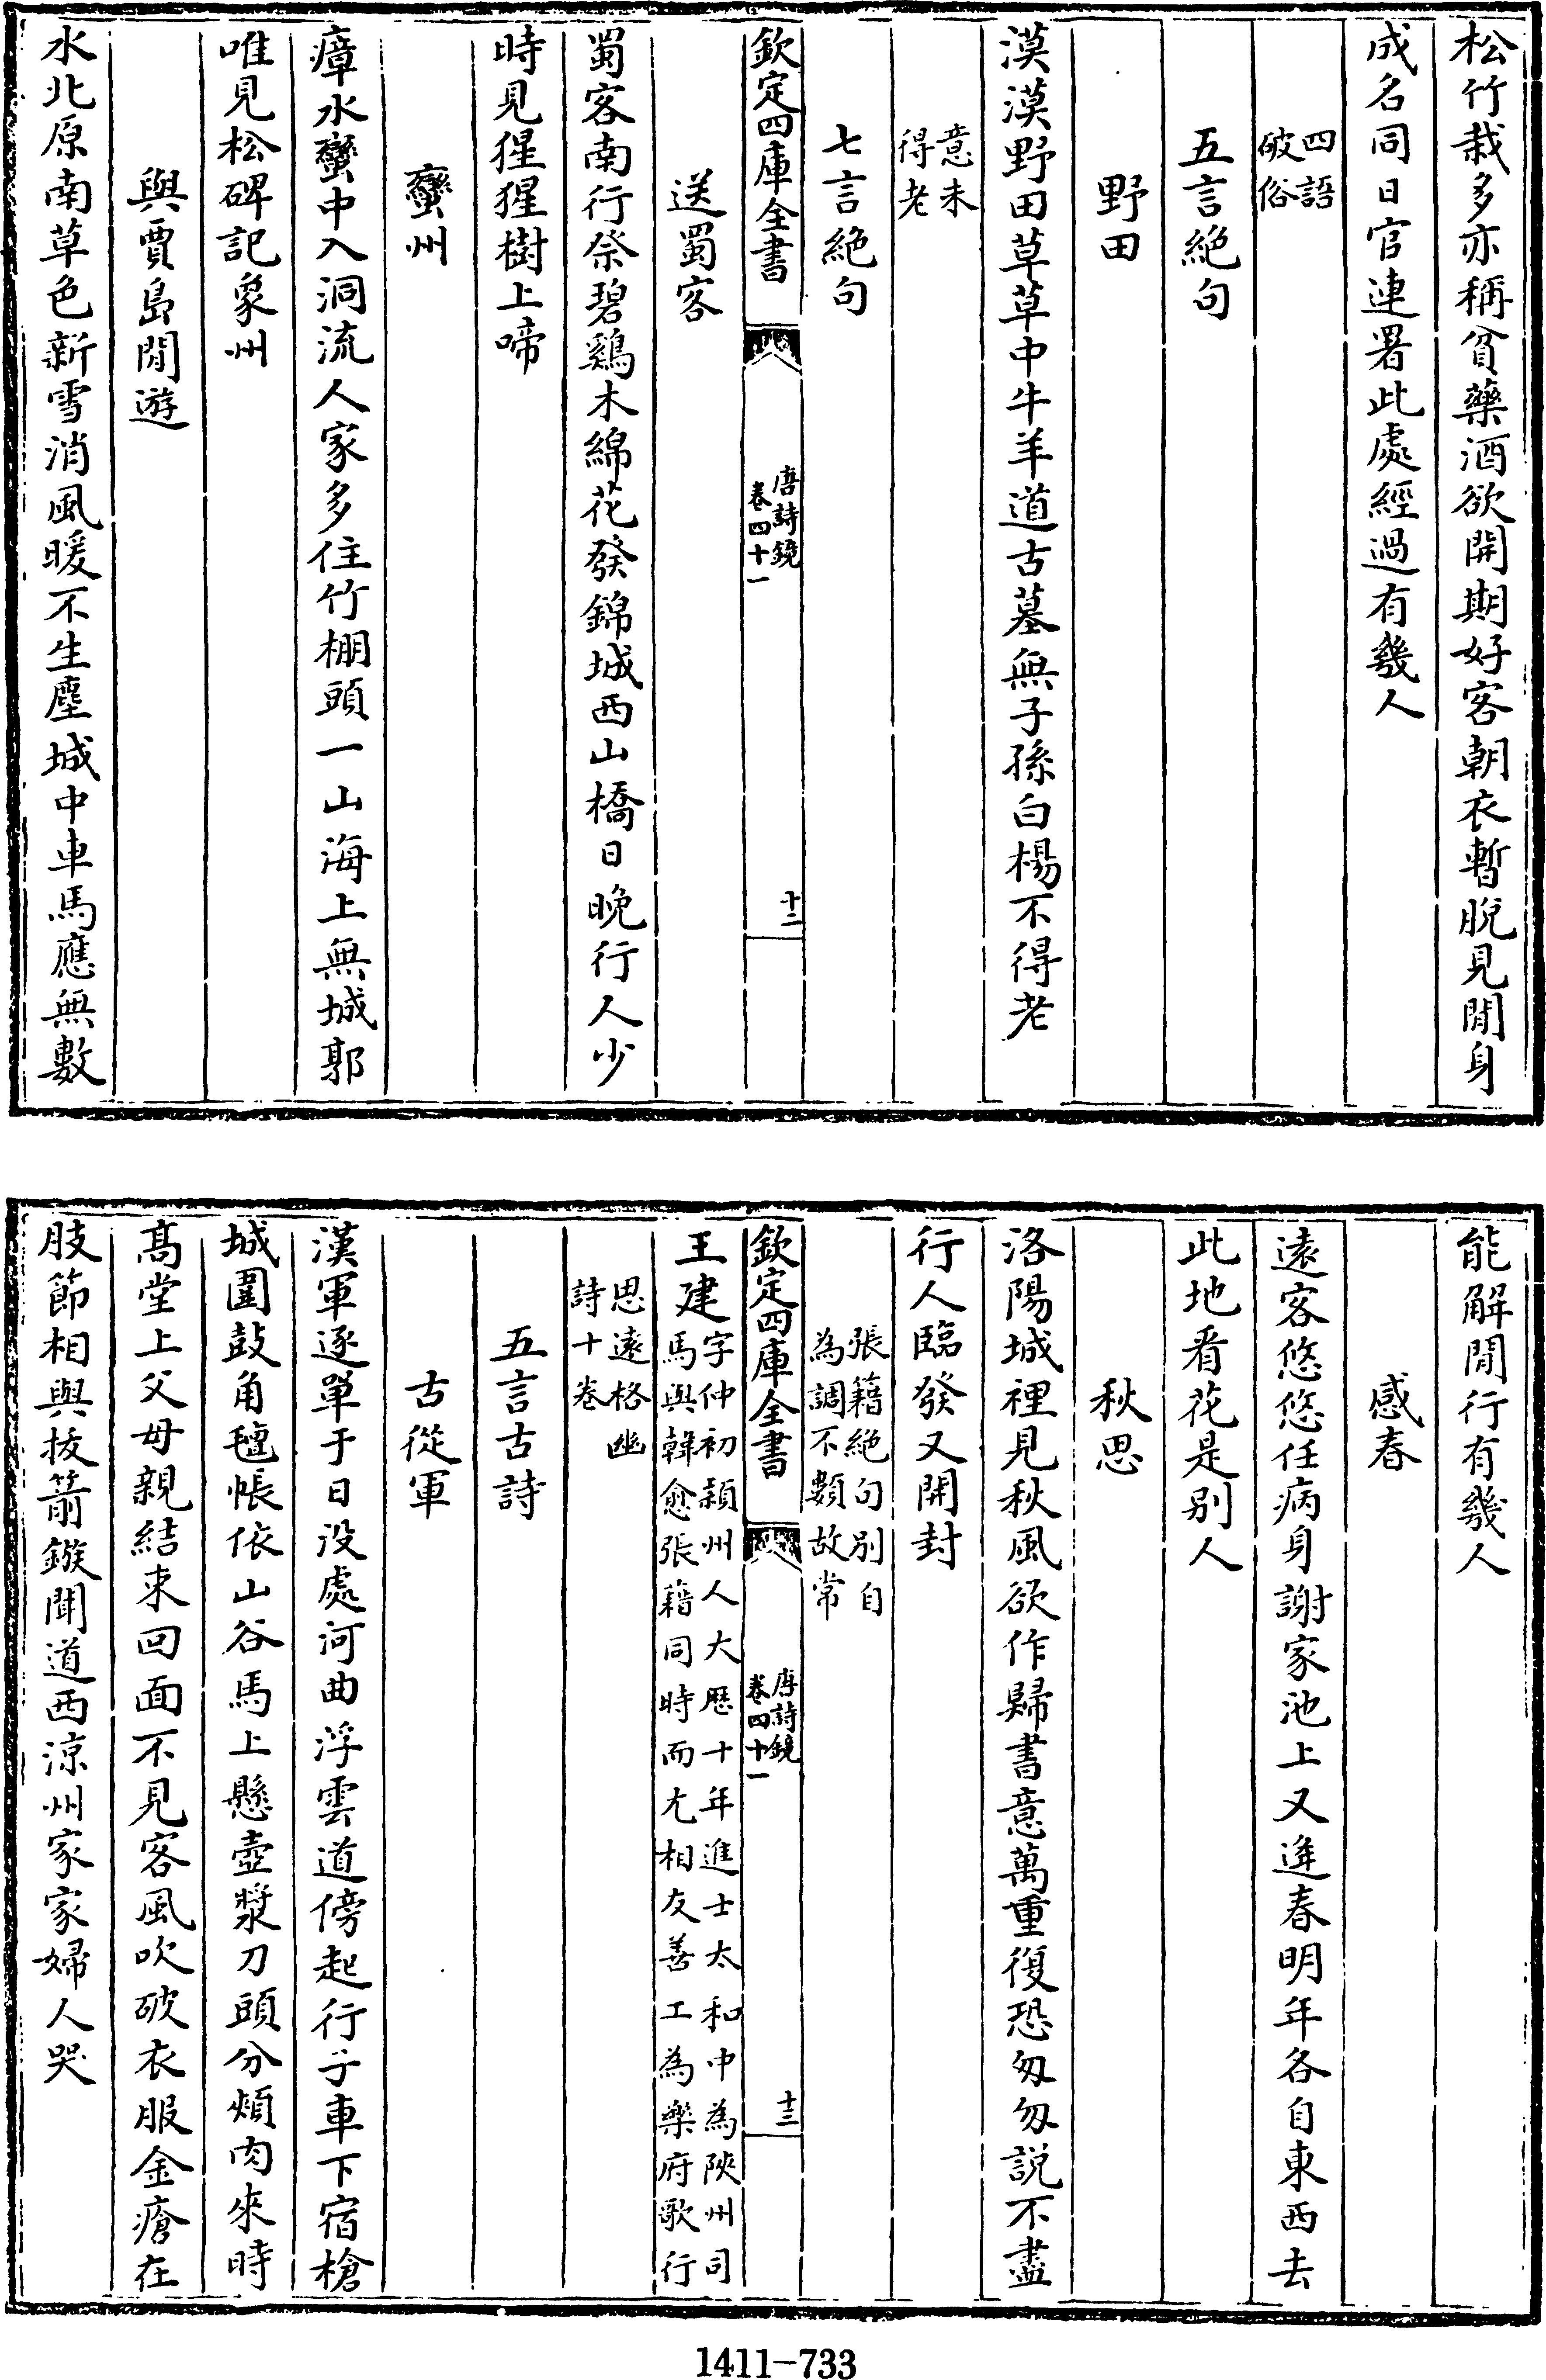 松竹栽多亦稱貧藥酒欲開期好客朝衣暫脫見閒身
成名同日官連署此處經過有幾人
四語
破俗
五言絶句
野田
漠漠野田草草中牛羊道古墓無子孫白楊不得老
意未
得老
七言絶句
欽定四庫全書
唐詩鏡
卷四十一
十二
送蜀客
蜀客南行祭碧鷄木綿花發錦城西山橋日晚行人少
時見猩猩樹上啼
蠻州
瘴水蠻中入洞流人家多住竹棚頭一山海上無城郭
唯見松碑記象州
與賈島閒遊
水北原南草色新雪消風暖不生塵城中車馬應無數
能解閒行有幾人
感春
遠客悠悠任病身謝家池上又逢春明年各自東西去
此地看花是别人
秋思
洛陽城裡見秋風欲作歸書意萬重復恐匆匆説不盡
行人臨發又開封
張籍絶句别自
為調不類故常
欽定四庫全書
唐詩鏡
卷四十一
十三
王建
字仲初頴州人大歴十年進士太和中為陜州司
馬與韓愈張籍同時而尤相友善工為樂府歌行
思遠格幽
詩十卷
五言古詩
古從軍
漢軍逐單于日没處河曲浮雲道傍起行子車下宿槍
城圍鼓角氊帳依山谷馬上懸壺漿刀頭分頰肉來時
髙堂上父母親結束回面不見客風吹破衣服金瘡在
肢節相與拔箭鏃聞道西涼州家家婦人哭
1411-733